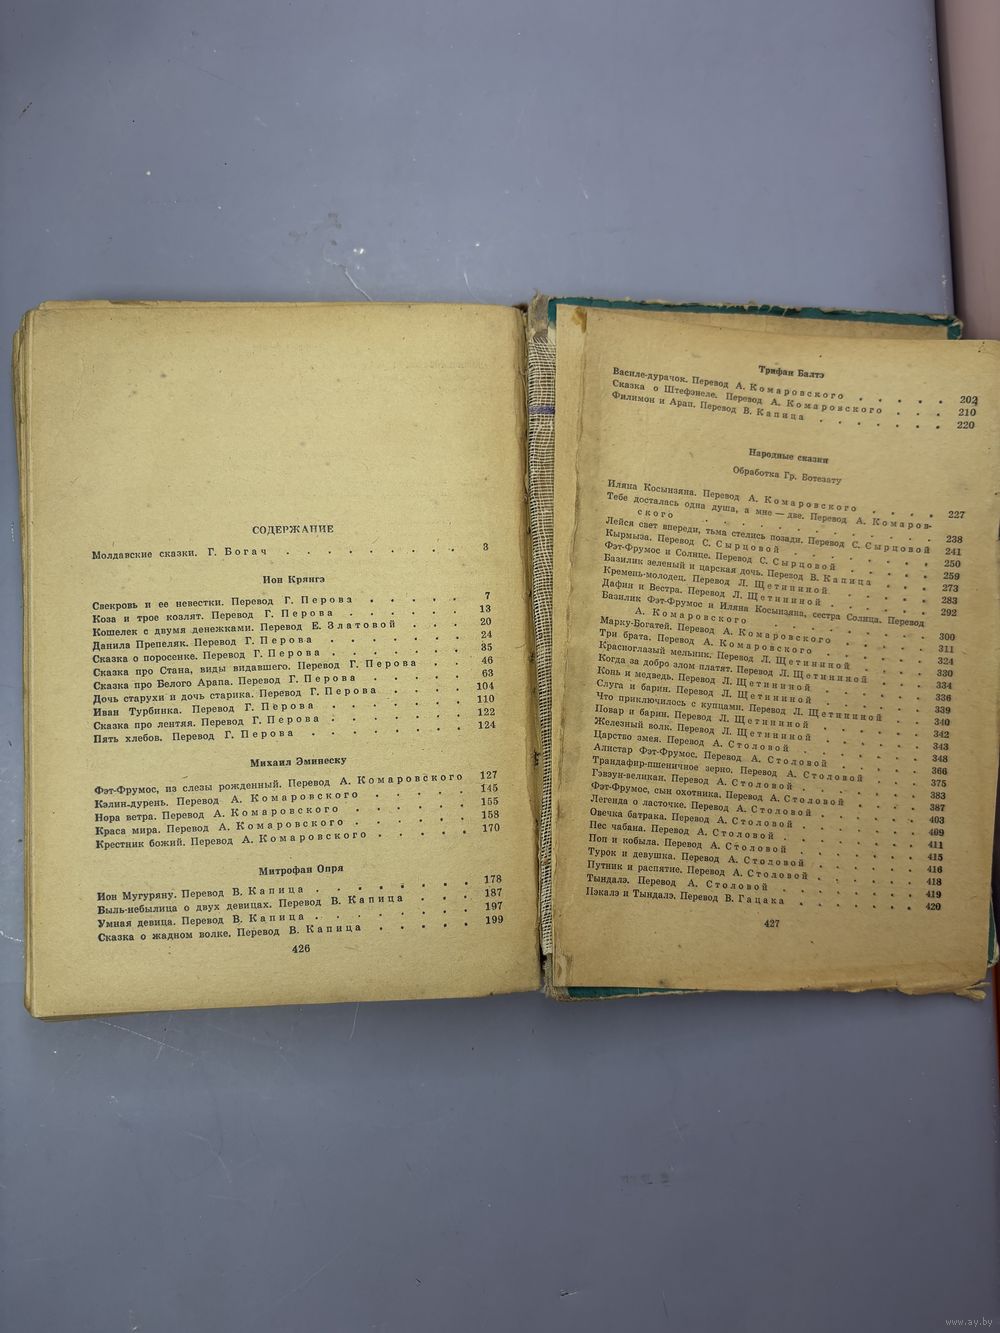 СОДЕРЖАНИЕ
Молдавские сказки. Г. Богач . . . . . . . . . 3
Ион Крянгэ
Свекровь и ее невестки. Перевод Г. Перова . . . . . 7
Коза и трое козлят. Перевод Г. Перова . . . . . . 13
Кошелек с двумя денежками. Перевод Е. Златовой . . . 20
Данила Препеляк. Перевод Г. Перова . . . . . . . 24
Сказка о поросенке. Перевод Г. Перова . . . . . . 35
Сказка про Стана, виды видавшего. Перевод Г. Перова . . 46
Сказка про Белого Арапа. Перевод Г. Перова . . . . . 63
Дочь старухи и дочь старика. Перевод Г. Перова . . . . 104
Иван Турбинка. Перевод Г. Перова . . . . . . . 110
Сказка про лентяя. Перевод Г. Перова . . . . . . 122
Пять хлебов. Перевод Г. Перова . . . . . . . 124
Михаил Эминеску
Фэт-Фрумос, из слезы рожденный. Перевод А. Комаровского 127
Кэлин-дурень. Перевод А. Комаровского . . . . . 145
Нора ветра. Перевод А. Комаровского . . . . . . 155
Краса мира. Перевод А. Комаровского . . . . . . 158
Крестник божий. Перевод А. Комаровского . . . . . 170
Митрофан Опря
Ион Мугуряну. Перевод В. Капица . . . . . . . 178
Быль-небылица о двух девицах. Перевод В. Капица . . . 187
Умная девица. Перевод В. Капица . . . . . . . . 197
Сказка о жадном волке. Перевод В. Капица . . . . . 199
426
Трифан Балтэ
Василе-дурачок. Перевод А. Комаровского . . . . . 202
Сказка о Штефэнеле. Перевод А. Комаровского . . . 210
Филимон и Арап. Перевод В. Капица . . . . . . . 220
Народные сказки
Обработка Гр. Ботезату
Иляна Косынзяна. Перевод А. Комаровского . . . . 227
Тебе досталась одна душа, а мне — две. Перевод А. Комаров-
ского . . . . . . . . . . 238
Лейся свет впереди, тьма стелись позади. Перевод С. Сырцовой 241
Кырмыза. Перевод С. Сырцовой . . . . . . 250
Фэт-Фрумос и Солнце. Перевод С. Сырцовой . . . . 259
Базилик зеленый и царская дочь. Перевод В. Капица . . . 273
Кремень-молодец. Перевод Л. Щетининой . . . . 283
Дафин и Вестра. Перевод Л. Щетининой . . . . . 292
Базилик Фэт-Фрумос и Иляна Косынзяна, сестра Солнца. Перевод
А. Комаровского . . . . . . . . 300
Марку-Богатей. Перевод А. Комаровского . . . . . 311
Три брата. Перевод А. Комаровского . . . . . 324
Красноглазый мельник. Перевод Л. Щетининой . . . . 330
Когда за добро злом платят. Перевод Л. Щетининой . . . 334
Конь и медведь. Перевод Л. Щетининой . . . . . 336
Слуга и барин. Перевод Л. Щетининой . . . . . 339
Что приключилось с купцами. Перевод Л. Щетининой . . 340
Повар и барин. Перевод Л. Щетининой . . . . . 342
Железный волк. Перевод Л. Щетининой . . . . . 343
Царство змея. Перевод А. Столовой . . . . . . 348
Алистар Фэт-Фрумос. Перевод А. Столовой . . . . 366
Трандафир-пшеничное зерно. Перевод А. Столовой . . . 375
Гэвэун-великан. Перевод А. Столовой . . . . . 383
Фэт-Фрумос, сын охотника. Перевод А. Столовой . . . 387
Легенда о ласточке. Перевод А. Столовой . . . . . 403
Овечка батрака. Перевод А. Столовой . . . . . 409
Пес чабана. Перевод А. Столовой . . . . . . 411
Поп и кобыла. Перевод А. Столовой . . . . . . 415
Турок и девушка. Перевод А. Столовой . . . . . 416
Путник и распятие. Перевод А. Столовой . . . . . 418
Тындалэ. Перевод А. Столовой . . . . . . . 419
Пэкалэ и Тындалэ. Перевод В. Гацака . . . . . . 420
427
www.ay.by